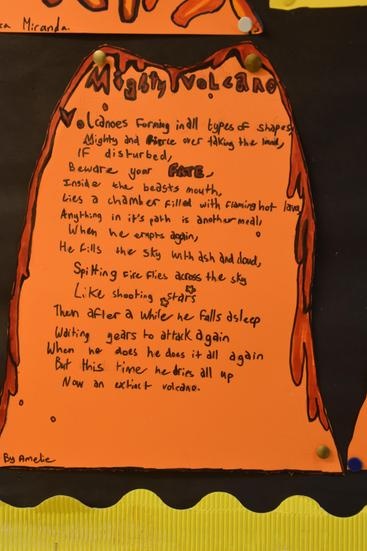 ca Miranda.
Mighty Volcano
Volcanoes forming in all types of shapes,
Mighty and fierce over taking the land,
If disturbed,
Beware your FATE,
Inside the beasts mouth,
Lies a chamber filled with flaming hot lava,
Anything in it's path is another meal,
When he erupts again,
He fills the sky with ash and cloud,
Spitting fire flies across the sky
Like shooting stars
Then after a while he falls asleep
Waiting years to attack again
When he does he does it all again
But this time he dries all up
Now an extinct volcano.
By Amelie